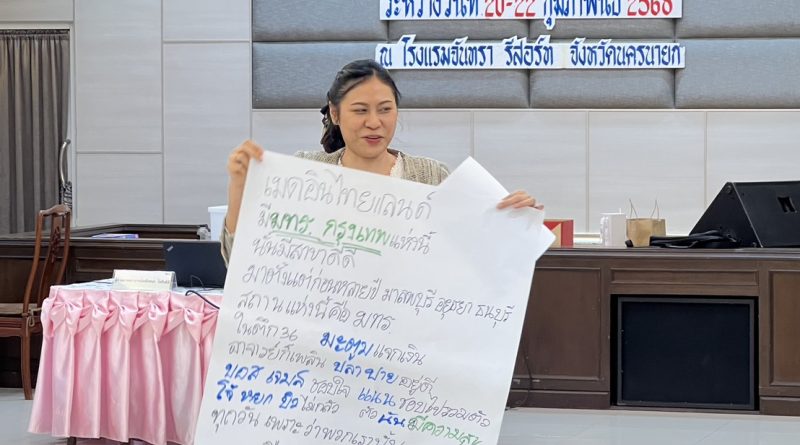 ระหว่างวันที่ 20-22 กุมภาพันธ์ 2568
ณ โรงแรมจันทรา รีสอร์ท จังหวัดนครนายก
เมดอินไทยแลนด์
มีมทร. กรุงเทพแห่งนี้
นั้นมีสาขาดีดี
มาตั้งแต่ก่อนหลายปี มาลพบุรี อยุธยา ธนบุรี
สถานแห่งนี้คือ มทร
ในตึก 36 มะตูม แจกเงิน
อาจารย์ก็เพลิน ปลา ปาย อยู่ดี
บอส เจมส์ ชอบใจ แนน ชอบไปรวมตัว
โจ้ หยก บิว ไม่กลัว นั้น มีความสุข
ทุกวัน เพราะว่าพวกเรา